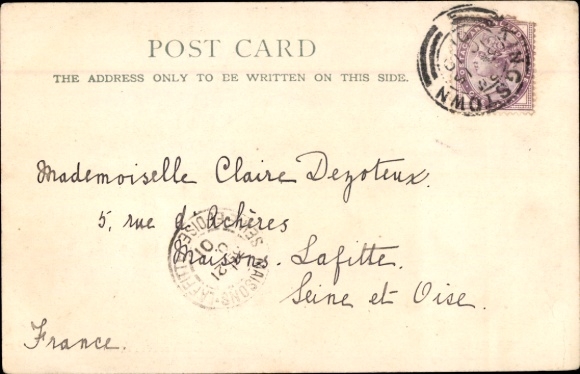 POST CARD
THE ADDRESS ONLY TO BE WRITTEN ON THIS SIDE.
KINGSTOWN
Mademoiselle Claire Dezoteux.
5, rue d'Achères
Maisons-Lafitte.
Seine et Oise.
France.
MAISONS-LAFFITTE
21
01